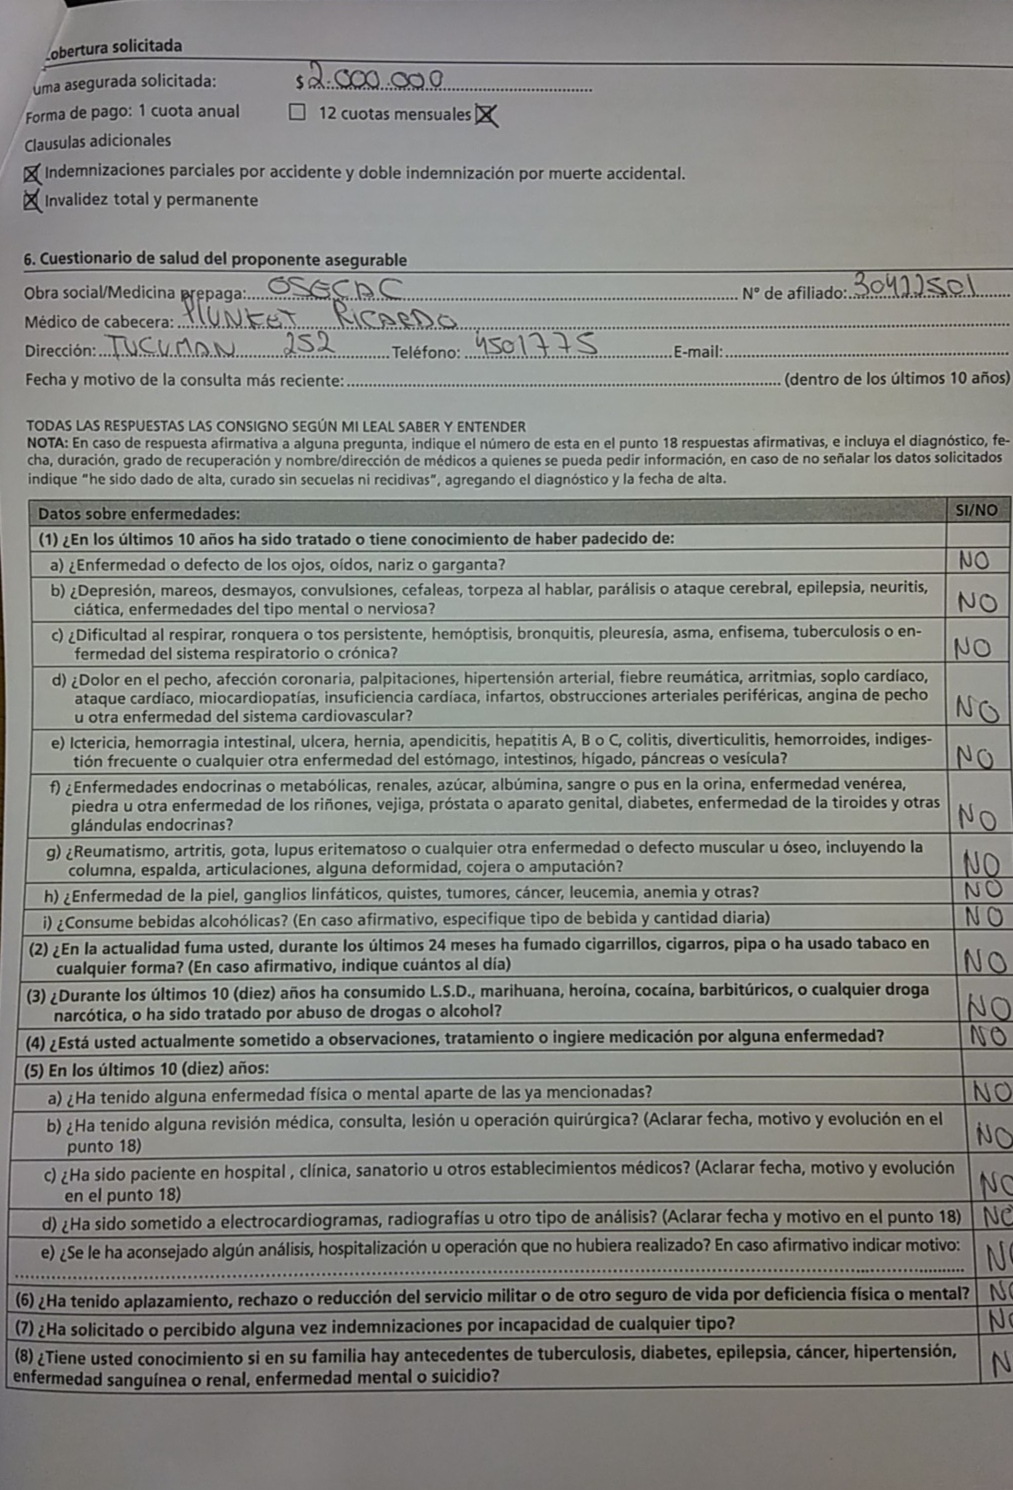 obertura solicitada
uma asegurada solicitada: $ 2.000.000
Forma de pago: 1 cuota anual ☐ 12 cuotas mensuales ☒
Clausulas adicionales
☒ Indemnizaciones parciales por accidente y doble indemnización por muerte accidental.
☒ Invalidez total y permanente
6. Cuestionario de salud del proponente asegurable
Obra social/Medicina prepaga: OSECAC N° de afiliado: 30422501
Médico de cabecera: PLUNKET RICARDO
Dirección: TUCUMAN 252 Teléfono: 4501775 E-mail:
Fecha y motivo de la consulta más reciente: (dentro de los últimos 10 años)
TODAS LAS RESPUESTAS LAS CONSIGNO SEGÚN MI LEAL SABER Y ENTENDER
NOTA: En caso de respuesta afirmativa a alguna pregunta, indique el número de esta en el punto 18 respuestas afirmativas, e incluya el diagnóstico, fe-
cha, duración, grado de recuperación y nombre/dirección de médicos a quienes se pueda pedir información, en caso de no señalar los datos solicitados
indique "he sido dado de alta, curado sin secuelas ni recidivas", agregando el diagnóstico y la fecha de alta.
Datos sobre enfermedades: SI/NO
(1) ¿En los últimos 10 años ha sido tratado o tiene conocimiento de haber padecido de:
a) ¿Enfermedad o defecto de los ojos, oídos, nariz o garganta? NO
b) ¿Depresión, mareos, desmayos, convulsiones, cefaleas, torpeza al hablar, parálisis o ataque cerebral, epilepsia, neuritis,
ciática, enfermedades del tipo mental o nerviosa? NO
c) ¿Dificultad al respirar, ronquera o tos persistente, hemóptisis, bronquitis, pleuresía, asma, enfisema, tuberculosis o en-
fermedad del sistema respiratorio o crónica? NO
d) ¿Dolor en el pecho, afección coronaria, palpitaciones, hipertensión arterial, fiebre reumática, arritmias, soplo cardíaco,
ataque cardíaco, miocardiopatías, insuficiencia cardíaca, infartos, obstrucciones arteriales periféricas, angina de pecho
u otra enfermedad del sistema cardiovascular? NO
e) Ictericia, hemorragia intestinal, ulcera, hernia, apendicitis, hepatitis A, B o C, colitis, diverticulitis, hemorroides, indiges-
tión frecuente o cualquier otra enfermedad del estómago, intestinos, hígado, páncreas o vesícula? NO
f) ¿Enfermedades endocrinas o metabólicas, renales, azúcar, albúmina, sangre o pus en la orina, enfermedad venérea,
piedra u otra enfermedad de los riñones, vejiga, próstata o aparato genital, diabetes, enfermedad de la tiroides y otras
glándulas endocrinas? NO
g) ¿Reumatismo, artritis, gota, lupus eritematoso o cualquier otra enfermedad o defecto muscular u óseo, incluyendo la
columna, espalda, articulaciones, alguna deformidad, cojera o amputación? NO
h) ¿Enfermedad de la piel, ganglios linfáticos, quistes, tumores, cáncer, leucemia, anemia y otras? NO
i) ¿Consume bebidas alcohólicas? (En caso afirmativo, especifique tipo de bebida y cantidad diaria) NO
(2) ¿En la actualidad fuma usted, durante los últimos 24 meses ha fumado cigarrillos, cigarros, pipa o ha usado tabaco en
cualquier forma? (En caso afirmativo, indique cuántos al día) NO
(3) ¿Durante los últimos 10 (diez) años ha consumido L.S.D., marihuana, heroína, cocaína, barbitúricos, o cualquier droga
narcótica, o ha sido tratado por abuso de drogas o alcohol? NO
(4) ¿Está usted actualmente sometido a observaciones, tratamiento o ingiere medicación por alguna enfermedad? NO
(5) En los últimos 10 (diez) años:
a) ¿Ha tenido alguna enfermedad física o mental aparte de las ya mencionadas? NO
b) ¿Ha tenido alguna revisión médica, consulta, lesión u operación quirúrgica? (Aclarar fecha, motivo y evolución en el
punto 18) NO
c) ¿Ha sido paciente en hospital , clínica, sanatorio u otros establecimientos médicos? (Aclarar fecha, motivo y evolución
en el punto 18) NO
d) ¿Ha sido sometido a electrocardiogramas, radiografías u otro tipo de análisis? (Aclarar fecha y motivo en el punto 18) NO
e) ¿Se le ha aconsejado algún análisis, hospitalización u operación que no hubiera realizado? En caso afirmativo indicar motivo: NO
(6) ¿Ha tenido aplazamiento, rechazo o reducción del servicio militar o de otro seguro de vida por deficiencia física o mental? NO
(7) ¿Ha solicitado o percibido alguna vez indemnizaciones por incapacidad de cualquier tipo? NO
(8) ¿Tiene usted conocimiento si en su familia hay antecedentes de tuberculosis, diabetes, epilepsia, cáncer, hipertensión,
enfermedad sanguínea o renal, enfermedad mental o suicidio? N